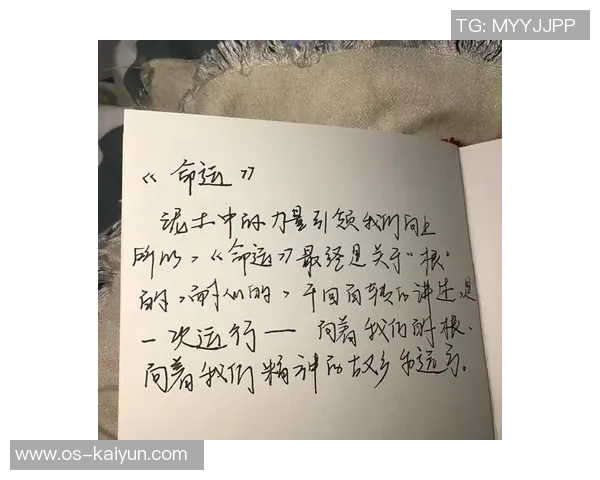 TG: MYYJJPP
《命运》
泥土中的力量引领我们向上
所以，《命运》最终是关于“根”
的，耐人的，千回百转的讲述，是
一次运行——向着我们的根、
向着我们精神的故乡
www.os-kaiyun.com